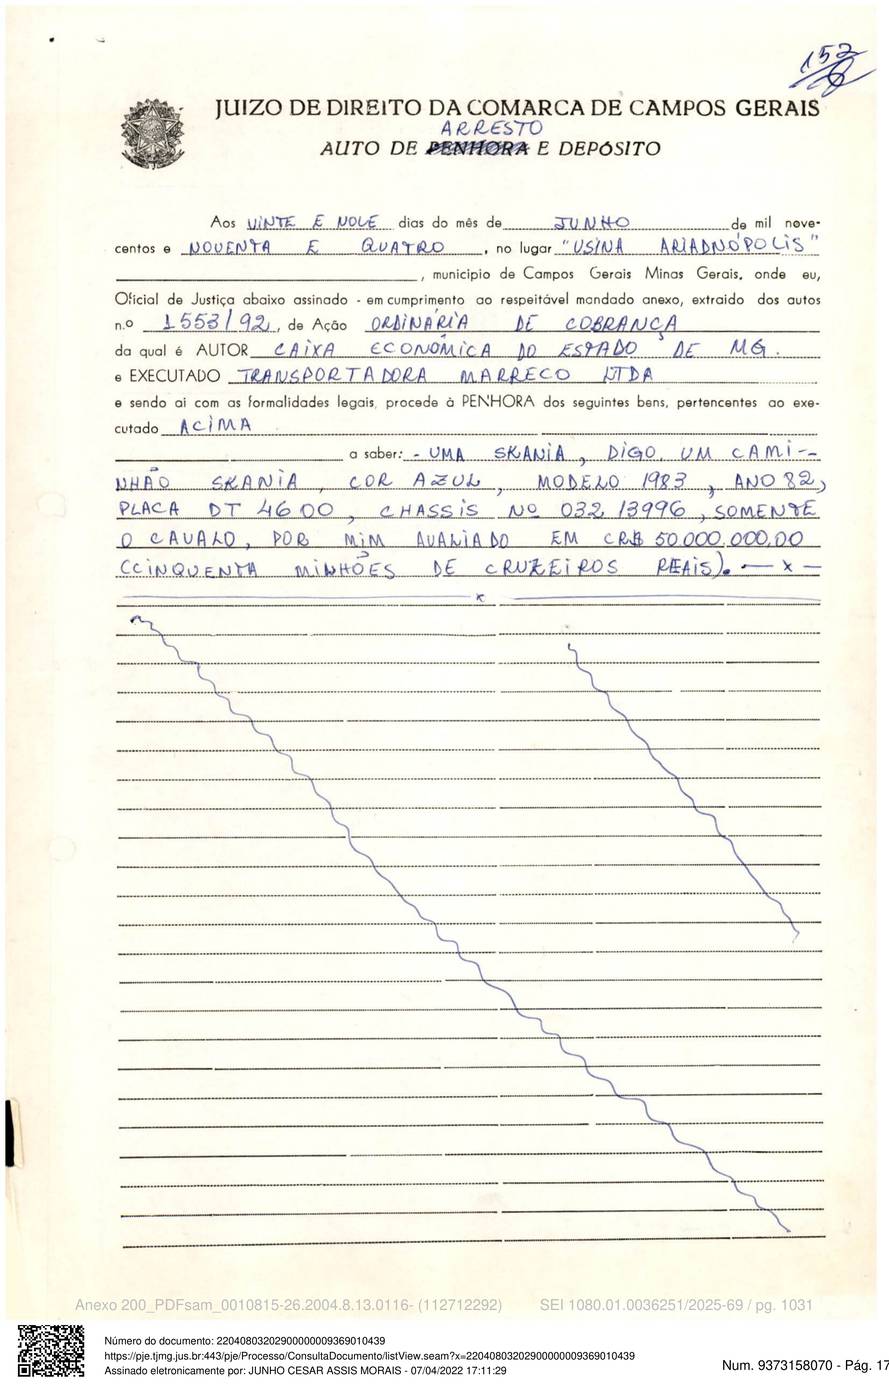 152
JUIZO DE DIREITO DA COMARCA DE CAMPOS GERAIS
ARRESTO
AUTO DE PENHORA E DEPÓSITO
Aos VINTE E NOVE dias do mês de JUNHO de mil nove-
centos e NOVENTA E QUATRO, no lugar "USINA ARIADNÓPOLIS"
, municipio de Campos Gerais Minas Gerais, onde eu,
Oficial de Justiça abaixo assinado - em cumprimento ao respeitável mandado anexo, extraido dos autos
n.o 1553/92, de Ação ORDINÁRIA DE COBRANÇA
da qual é AUTOR CAIXA ECONÔMICA DO ESTADO DE MG.
e EXECUTADO TRANSPORTADORA MARRECO LTDA
e sendo ai com as formalidades legais, procede à PENHORA dos seguintes bens, pertencentes ao exe-
cutado ACIMA
a saber: - UMA SKANIA, DIGO, UM CAMI-
NHÃO SKANIA, COR AZUL, MODELO 1983, ANO 82,
PLACA DT 4600, CHASSIS Nº 032 13996, SOMENTE
O CAVALO, POR MIM AVALIADO EM CR$ 50.000.000,00
(CINQUENTA MINHÕES DE CRUZEIROS REAIS). — x —
x
Anexo 200_PDFsam_0010815-26.2004.8.13.0116- (112712292) SEI 1080.01.0036251/2025-69 / pg. 1031
Número do documento: 22040803202900000009369010439
https://pje.tjmg.jus.br:443/pje/Processo/ConsultaDocumento/listView.seam?x=22040803202900000009369010439
Assinado eletronicamente por: JUNHO CESAR ASSIS MORAIS - 07/04/2022 17:11:29
Num. 9373158070 - Pág. 17